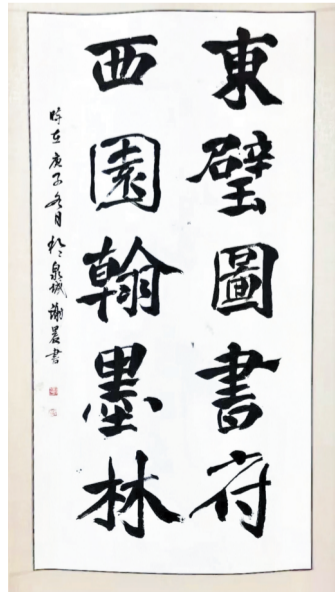 東璧圖書府
西園翰墨林
時在庚子冬月於泉城謝晨書